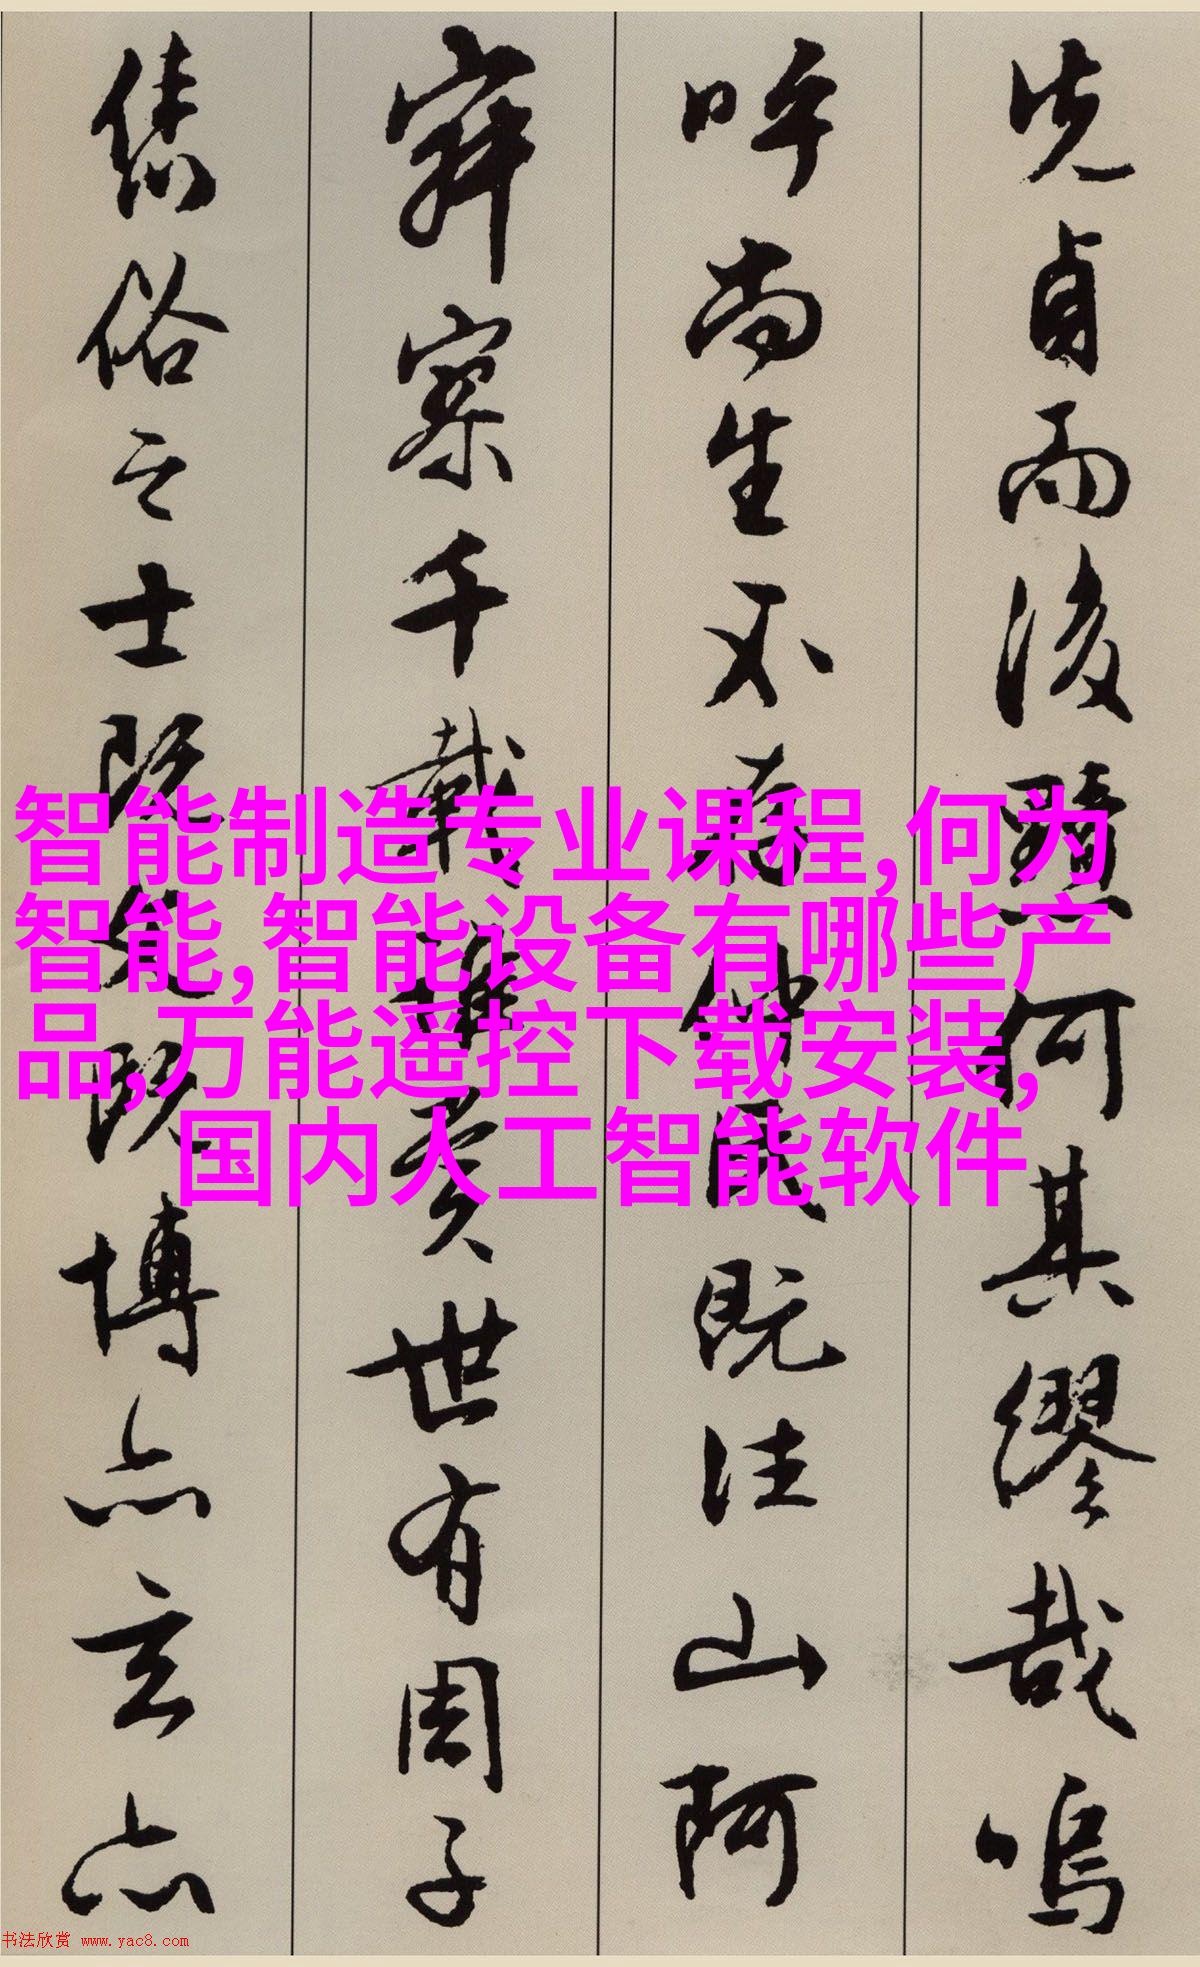 先貞而後黷何其繆哉嗚
呼尚生不存仲氏既往山阿
寂寥千載誰賞世有周子
雋俗之士既文既博亦玄亦
智能制造专业课程,何为
智能,智能设备有哪些产
品,万能遥控下载安装,
国内人工智能软件
书法欣赏 www.yac8.com